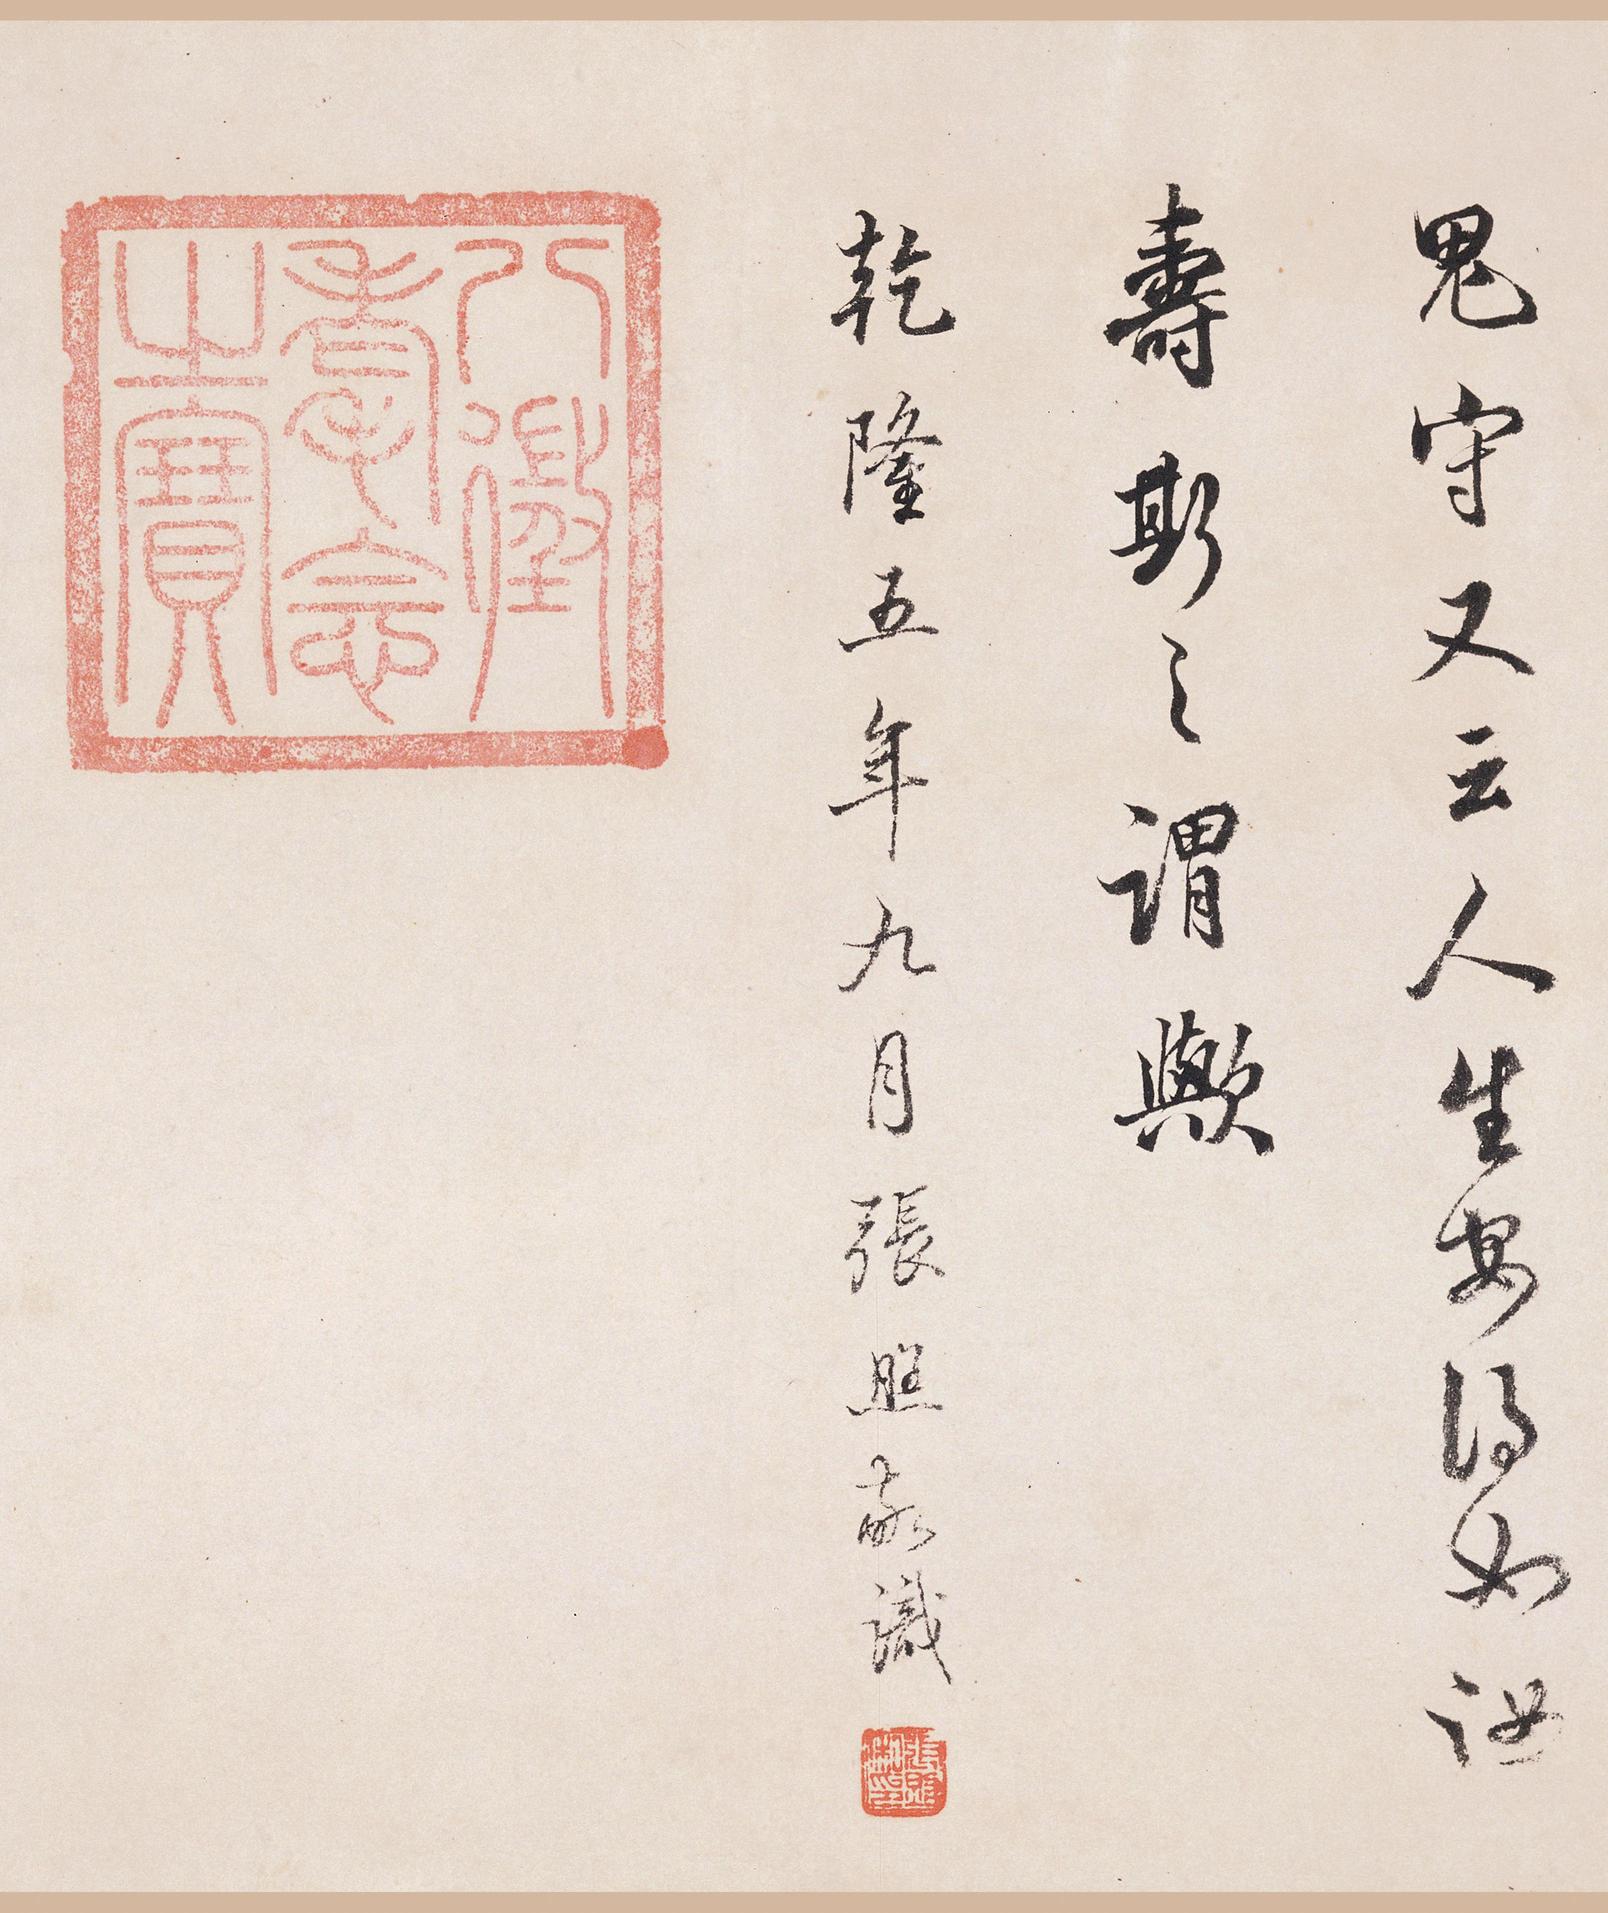 鬼守又云人生安得如汝
壽斯之謂歟
乾隆五年九月張照敬識
八徵耄念之寶
張照